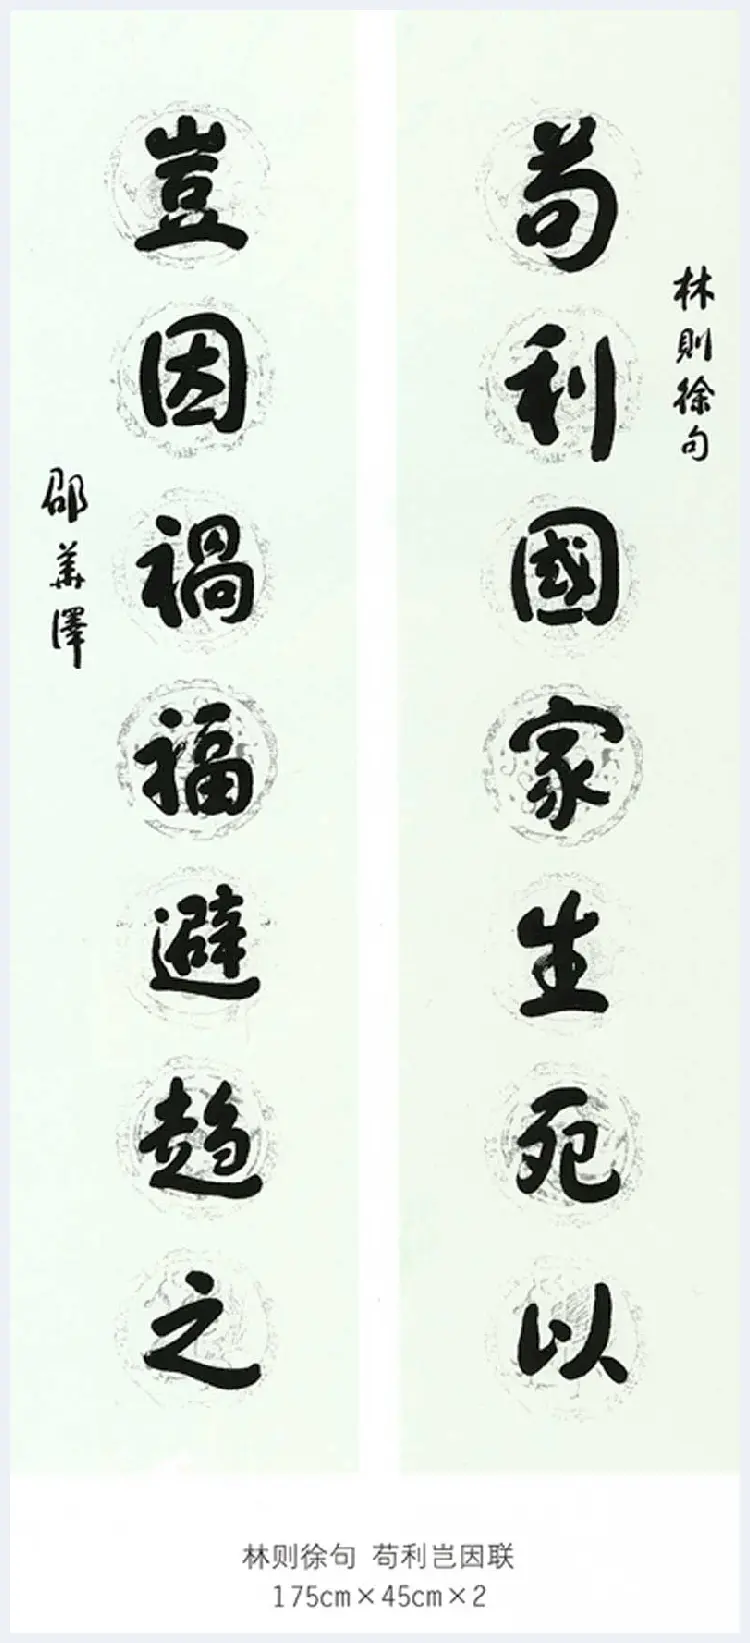 林則徐句
苟利國家生死以
豈因禍福避趨之
邵華澤
林则徐句 苟利岂因联
175cm×45cm×2